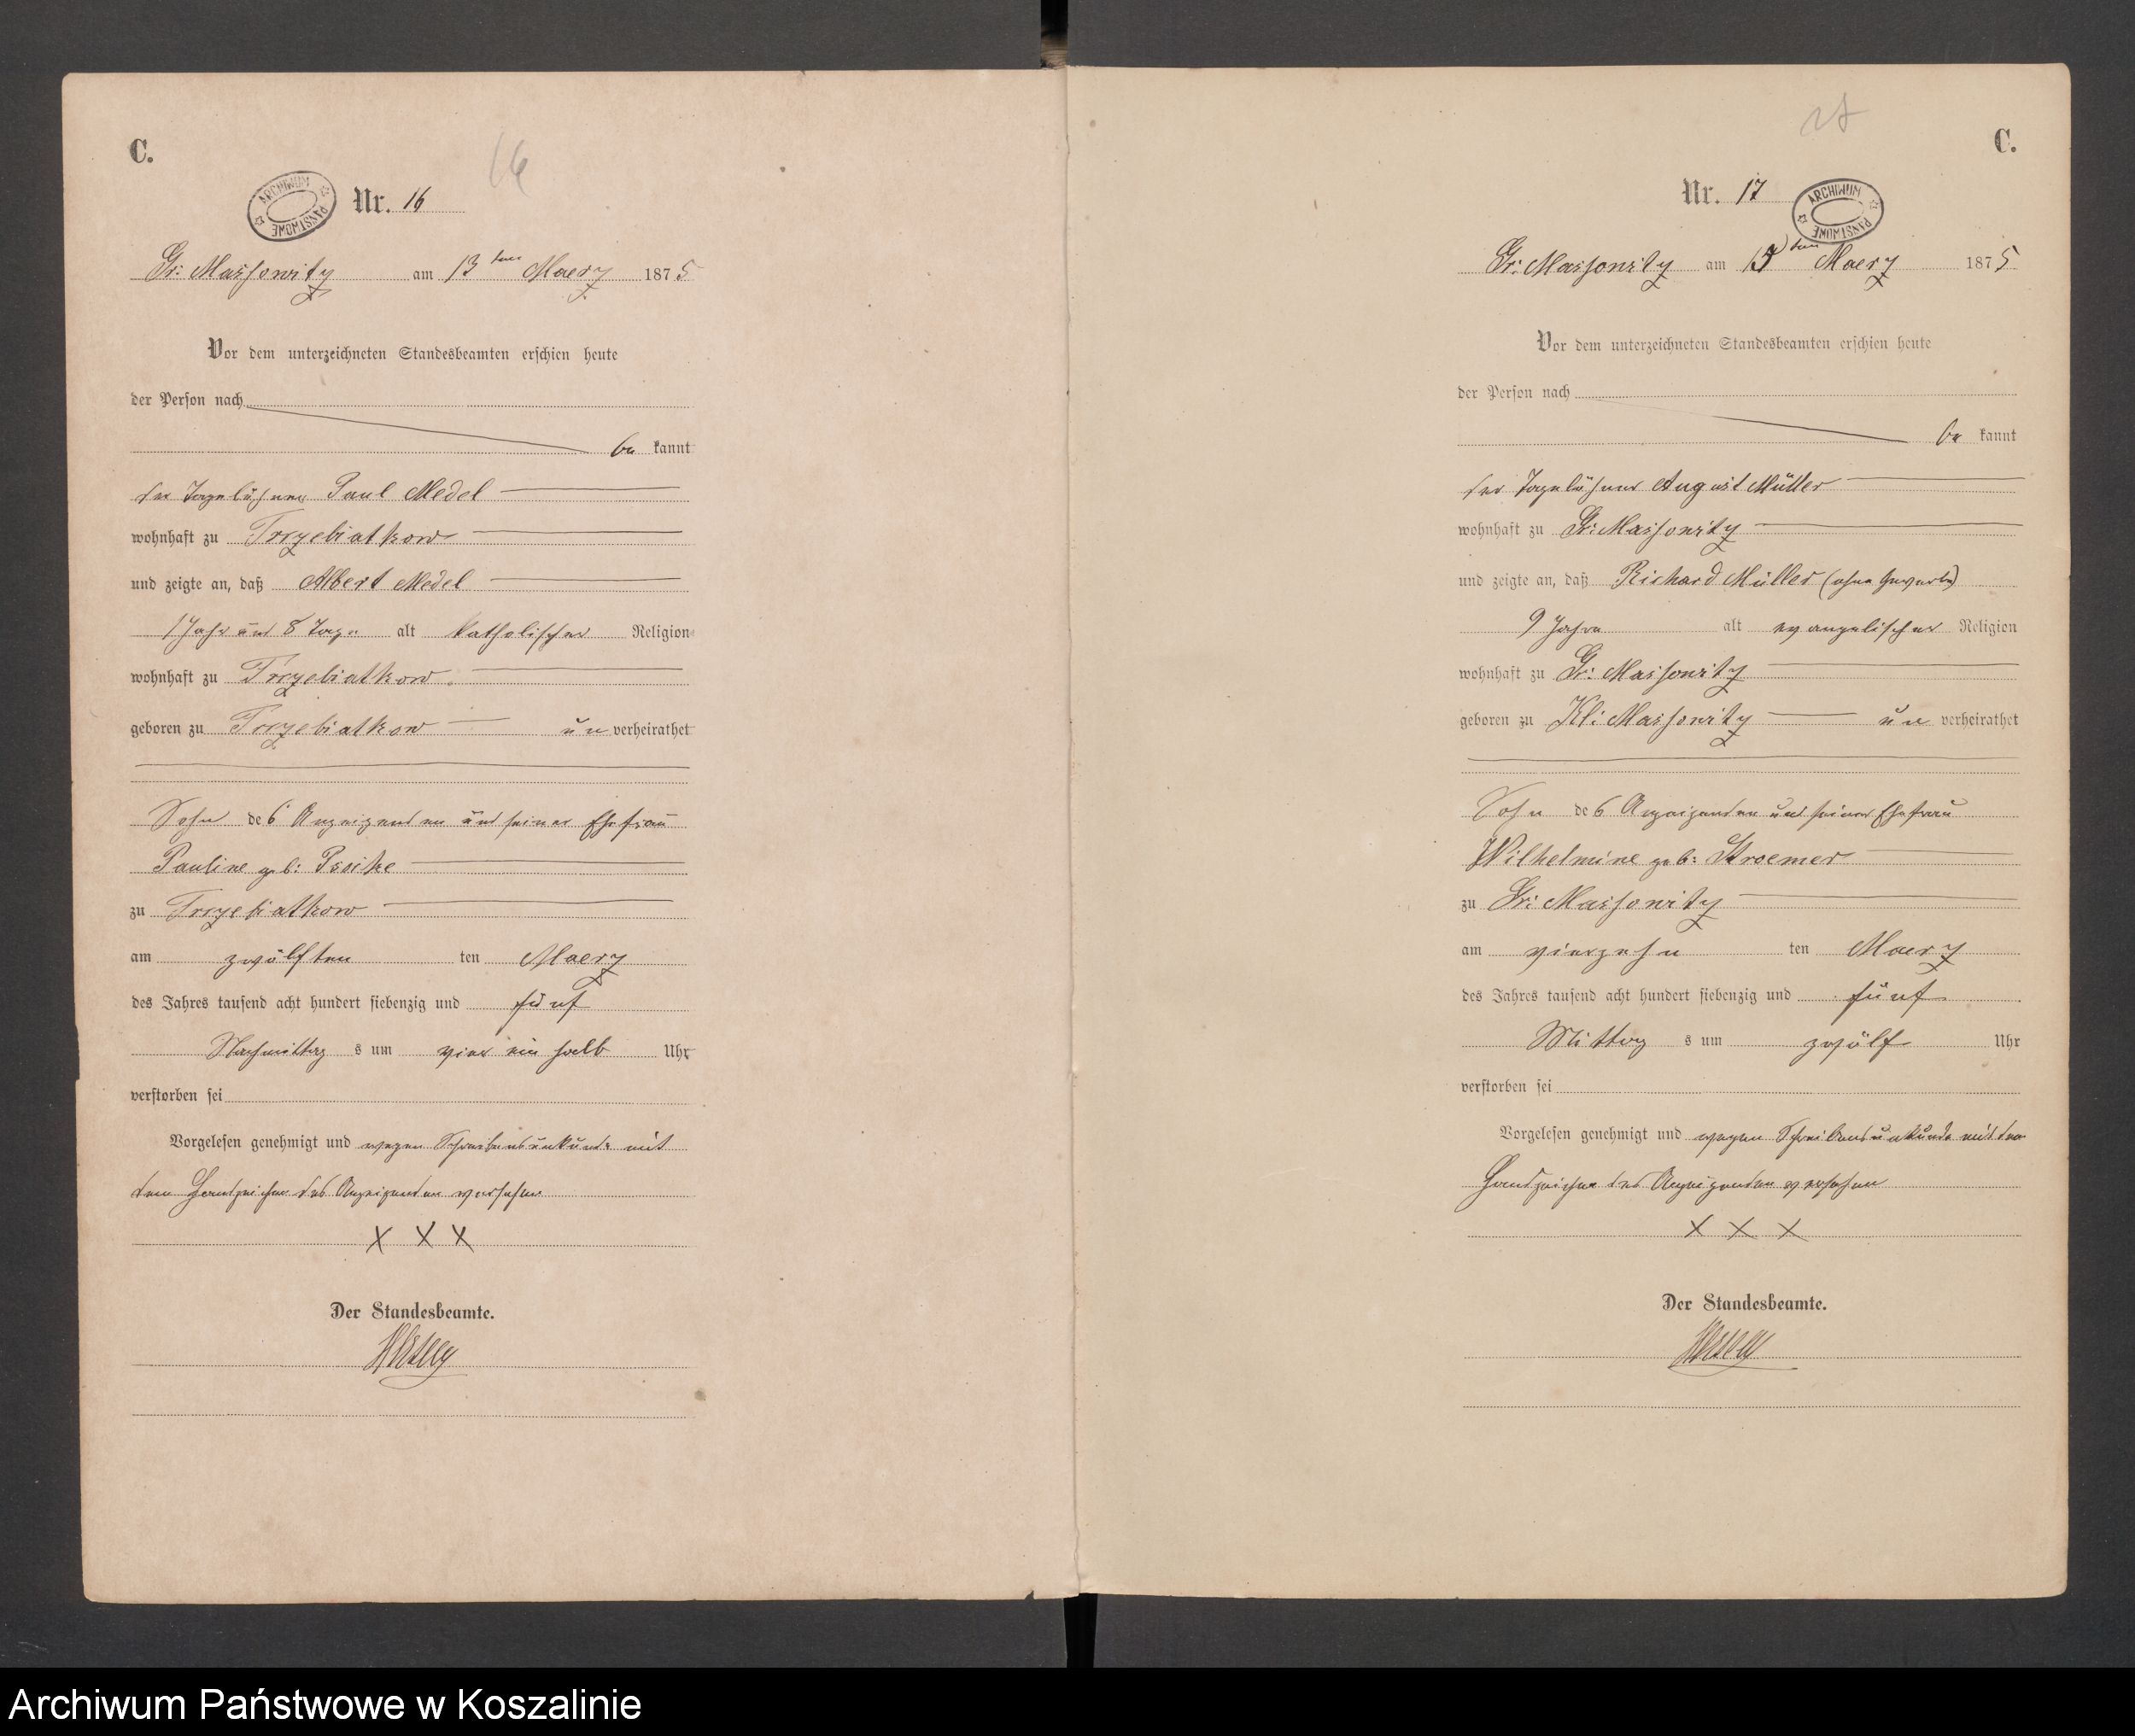 C.
16
ARCHIWUM PAŃSTWOWE
Nr. 16
Gr: Massowitz am 13ten Maerz 1875
Vor dem unterzeichneten Standesbeamten erschien heute
der Person nach
be kannt
der Tagelöhner Paul Medel
wohnhaft zu Trzebiatkow
und zeigte an, daß Albert Medel
1 Jahr und 8 Tage alt katholischer Religion
wohnhaft zu Trzebiatkow
geboren zu Trzebiatkow un verheirathet
Sohn des Anzeigenden und seiner Ehefrau
Pauline geb:
zu Trzebiatkow
am zwölften ten Maerz
des Jahres tausend acht hundert siebenzig und fünf
Nachmittag s um vier ein halb Uhr
verstorben sei
Vorgelesen genehmigt und wegen Schreibensunkunde mit
dem Handzeichen des Anzeigenden versehen
X X X
Der Standesbeamte.
C.
Nr. 17
ARCHIWUM PAŃSTWOWE
Gr: Massowitz am 15ten Maerz 1875
Vor dem unterzeichneten Standesbeamten erschien heute
der Person nach
be kannt
der Tagelöhner August Müller
wohnhaft zu Gr: Massowitz
und zeigte an, daß Richard Müller (ohne Gewerbe)
9 Jahre alt evangelischer Religion
wohnhaft zu Gr: Massowitz
geboren zu Kl: Massowitz un verheirathet
Sohn des Anzeigenden und seiner Ehefrau
Wilhelmine geb: Stroemer
zu Gr: Massowitz
am vierzehn ten Maerz
des Jahres tausend acht hundert siebenzig und fünf
Mittag s um zwölf Uhr
verstorben sei
Vorgelesen genehmigt und wegen Schreibensunkunde mit dem
Handzeichen des Anzeigenden versehen
X X X
Der Standesbeamte.
Archiwum Państwowe w Koszalinie